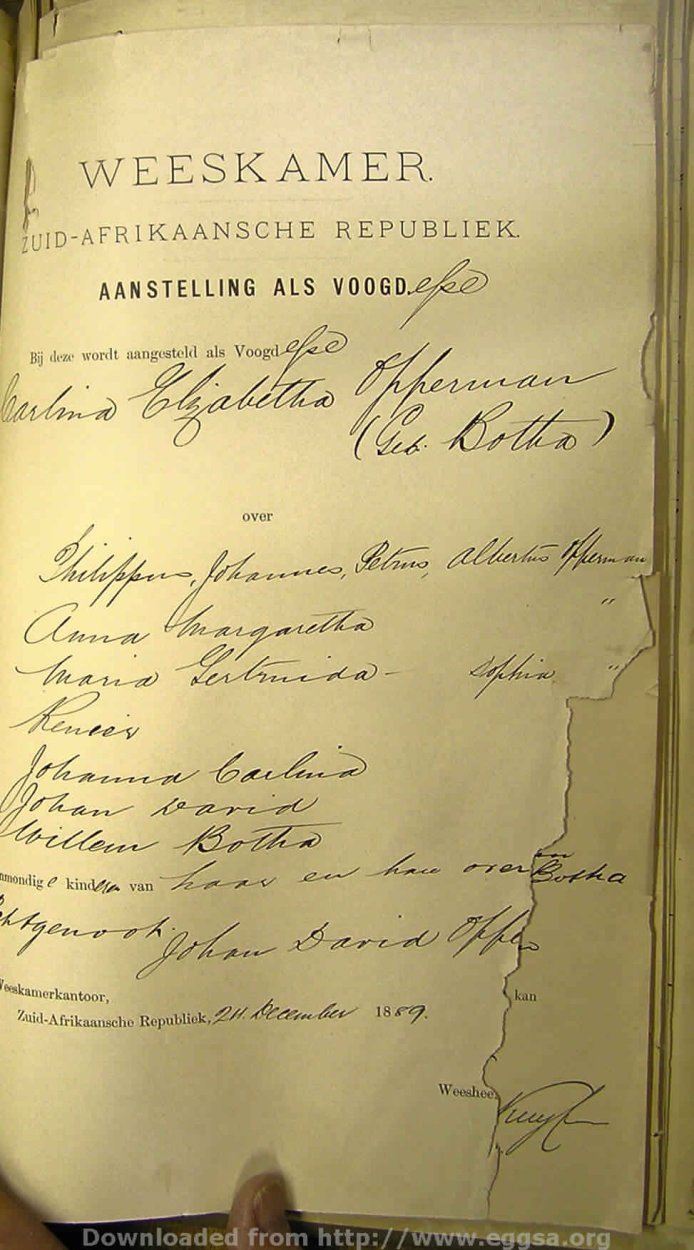 WEESKAMER.
ZUID-AFRIKAANSCHE REPUBLIEK.
AANSTELLING ALS VOOGD.esse
Bij deze wordt aangesteld als Voogdesse
Carlina Elizabetha Opperman
(Geb. Botha)
over
Philippus, Johannes, Petrus, Albertus Opperman
Anna Margaretha "
Maria Gertruida - Sophia "
Renier
Johanna Carlina
Johan David
Willem Botha
nmondige kinderen van haar en haar over
Botha
chtgenoot Johan David Oppe
Weeskamerkantoor,
kan
Zuid-Afrikaansche Republiek, 24 December 1889.
Weeshee
Downloaded from http://www.eggsa.org